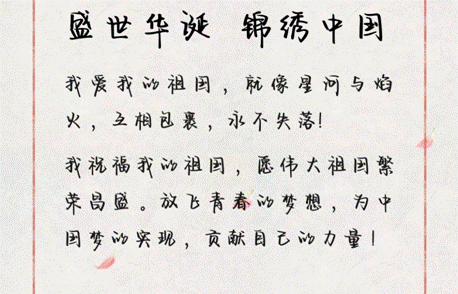 盛世华诞 锦绣中国
我爱我的祖国，就像星河与焰
火，互相包裹，永不失落！
我祝福我的祖国，愿伟大祖国繁
荣昌盛。放飞青春的梦想，为中
国梦的实现，贡献自己的力量！